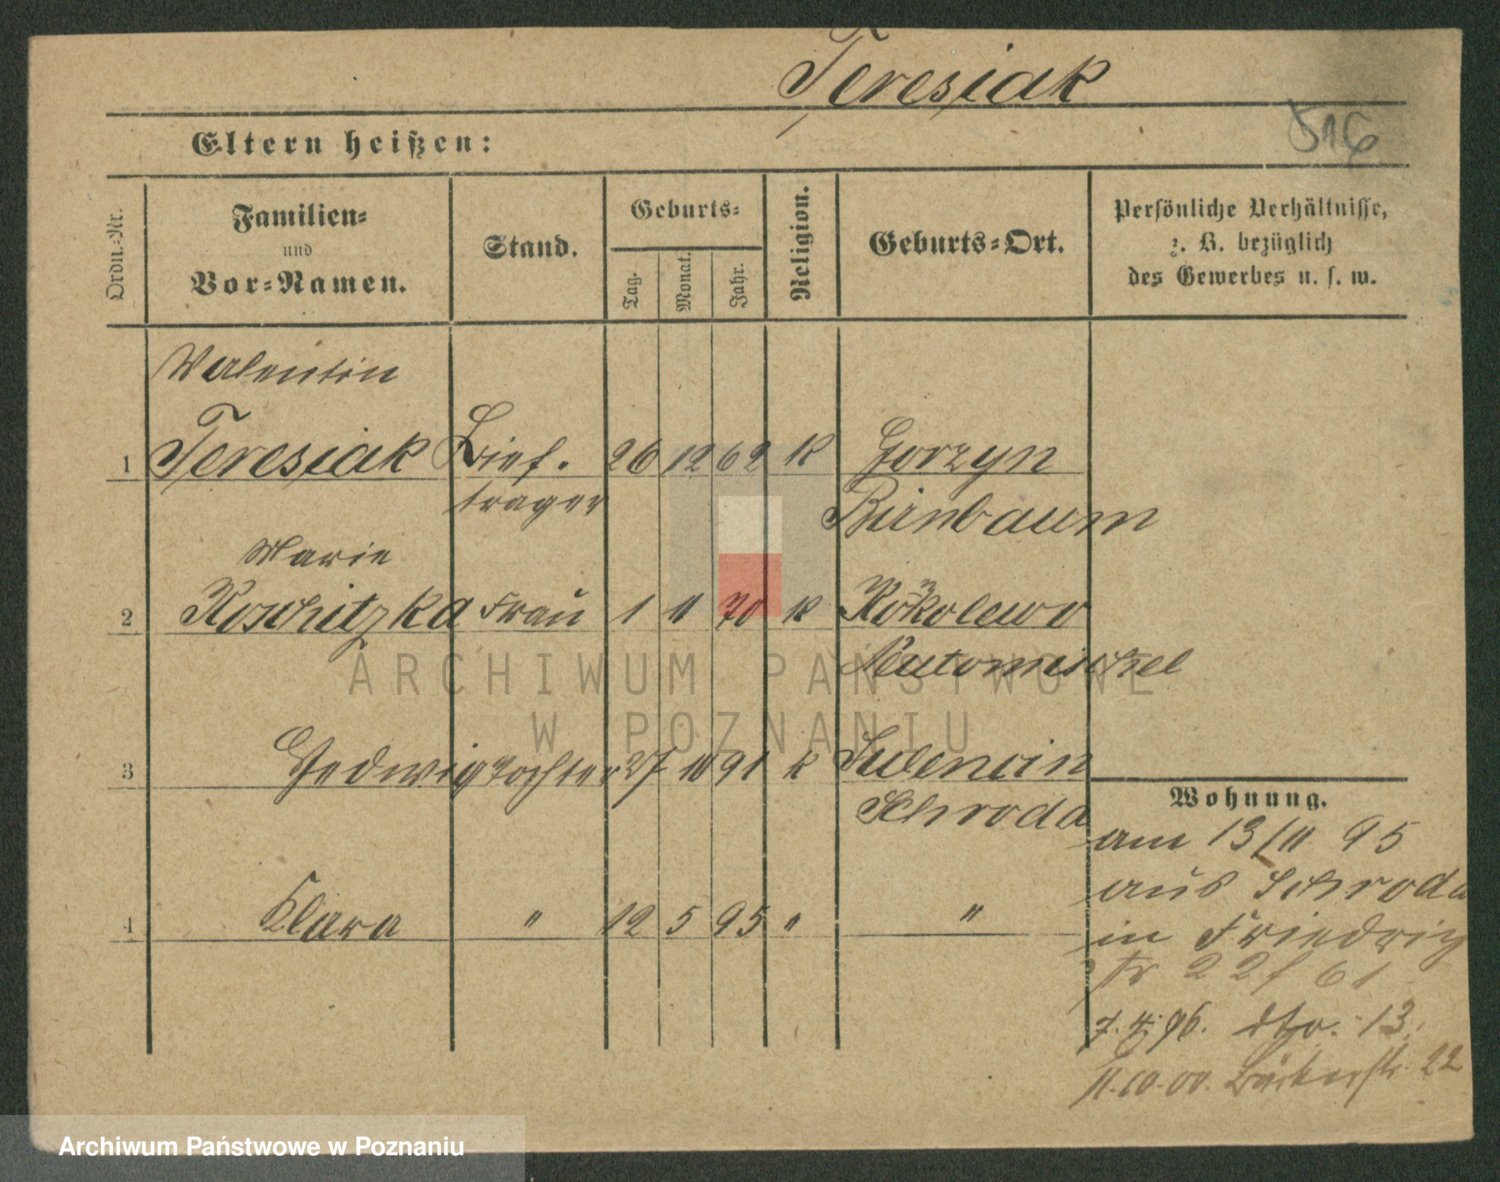 Teresiak
516
Eltern heißen:
Ordn.-Nr.
Familien-
und
Vor-Namen.
Stand.
Geburts-
Tag.
Monat.
Jahr.
Religion.
Geburts-Ort.
Persönliche Verhältnisse,
z. B. bezüglich
des Gewerbes u. s. w.
Valentin
1 Teresiak Brief. 26 12 62 k Gorzyn
träger Birnbaum
Marie
2 Koschitzka Frau 1 11 70 k Kökolewo
Neutomischel
3 Hedwig Tochter 27 10 91 k Sulencin
Schroda
Wohnung.
am 13/11 95
aus Schroda
4 Klara " 12 5 95 " "
in Friedrich
str 22 / 61
7.4.96. dto. 13.
11.10.00. Bäckerstr. 22
ARCHIWUM PAŃSTWOWE
W POZNANIU
Archiwum Państwowe w Poznaniu